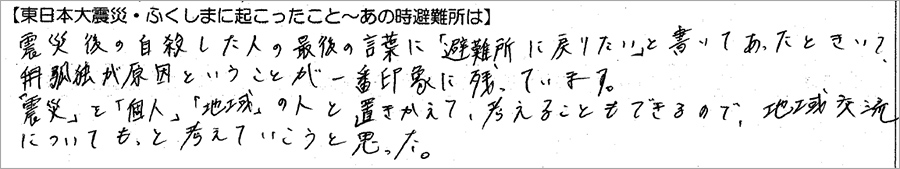 【東日本大震災・ふくしまに起こったこと～あの時避難所は】
震災後の自殺した人の最後の言葉に「避難所に戻りたい」と書いてあったときいて、
孤独が原因ということが一番印象に残っています。
「震災」と「個人」「地域」の人と置きかえて、考えることもできるので、地域交流
についてもっと考えていこうと思った。